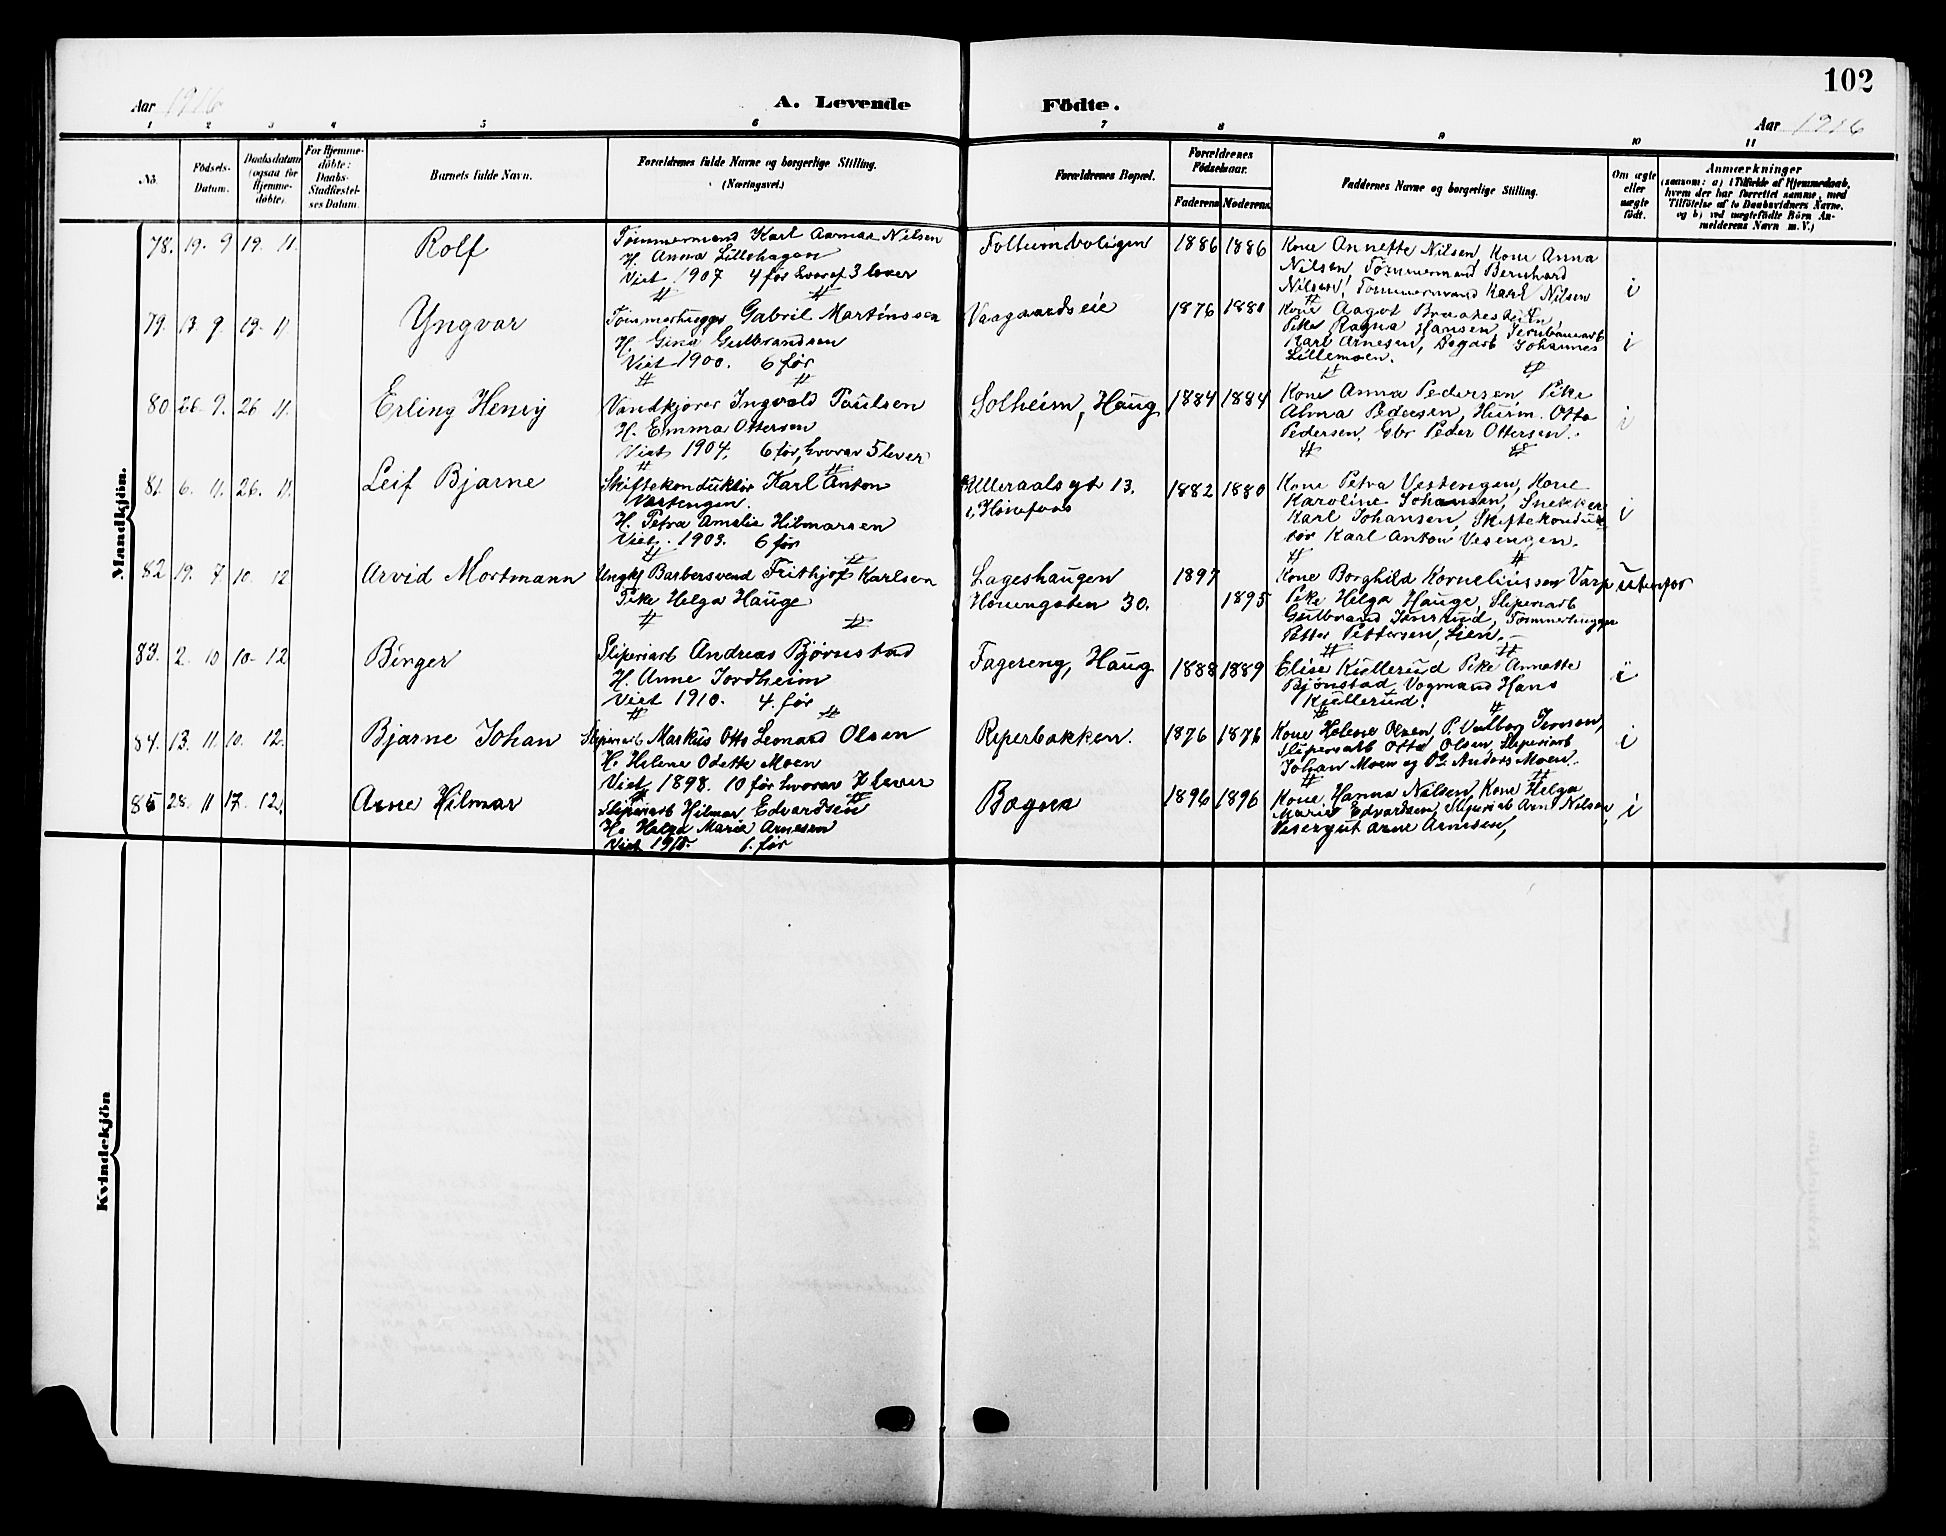 102
Aar 1916
A. Levende Födte.
Aar 1916
1 2 3 4 5 6 7 8 9 10 11
No.
Födsels-
Datum.
Daabsdatum
(ogsaa for
Hjemme-
döbte)
For Hjemme-
döbte:
Daabs-
Stadfæstel-
ses Datum.
Barnets fulde Navn.
Forældrenes fulde Navne og borgerlige Stilling.
(Næringsvei.)
Forældrenes Bopæl.
Forældrenes
Födselsaar.
Faderens Moderens
Faddernes Navne og borgerlige Stilling.
Om ægte
eller
uægte
födt.
Anmærkninger
(saasom: a) i Tilfælde af Hjemmedaab,
hvem der har forrettet samme, med
Tilföielse af to Daabsvidners Navne.
og b) ved uægtefödte Börn An-
melderens Navn m. V.)
Mandkjön.
78. 19. 9 19. 11. Rolf
Tømmermand Karl Nilsen
H. Anna Lillehagen
Viet 1907 4 før hvoraf 3 lever
Follumboligen 1886 1886
Kone Annette Nilsen, Kone Anna
Nilsen, Tømmermand Bernhard
Nilsen, Tømmermand Karl Nilsen
i
79. 13. 9. 19. 11 Yngvar
Tømmerhugger Gabril Martinssen
H. Gina Gulbrandsen
Viet 1900. 6 før
Vaagaardseie 1876 1880
Kone Aagot
Pike Ragna Hansen, Jernbanearb
Karl Arnesen, Dagarb Johannes
Lillemoen.
i
80 26. 9. 26 11. Erling Henry
Vandkjører Ingvald Paulsen
H. Emma Ottersen
Viet 1904, 6 før, hvorav 5 lever
Solheim, Haug 1884 1884
Kone Anna Pedersen, Pike
Alma Pedersen, Husm. Otto
Pedersen, Gbr Peder Ottersen.
i
81. 6. 11. 26. 11. Leif Bjarne
Skiftekonduktør Karl Anton
Vestengen.
H. Petra Amalie Hilmarsen
Viet. 1903. 6 før
Ulleraalsgt 13.
i Hønefoss
1882 1880
Kone Petra Vestengen, Kone
Karoline Johansen, Snekker
Karl Johansen, Skiftekonduk
tør Karl Anton Vesengen.
i
82 19. 7. 10. 12 Arvid Mortmann
Ungk Barbersvend Frithjof Karlsen
Pike Helga Hauge
Lageshaugen
Hønengaten 30.
1897
1895
Kone Borghild Korneliussen Varp
Pike Helga Hauge, Sliperiarb
Gulbrand Tømmerhugger
Petter Pettersen, Lien.
utenfor
83. 2. 10 10- 12 Birger
Sliperiarb Andreas Bjørnstad
H. Anne Jordheim
Viet 1910. 4. før
Fagereng, Haug 1888 1889
Elise Kjellerud Pike Annette
Bjønstad, Vogmand Hans
Kjellerud.
i
84. 13. 11. 10. 12. Bjarne Johan
Sliperiarb Markus Otto Leonard Olsen
H. Helene Odette Moen
Viet 1898. 10 før hvorav 7 lever
Reperbakken. 1876 1876
Kone Helene Olsen, P. Valborg Jensen,
Sliperiarb Otto Olsen, Sliperiarb
Johan Moen og Anders Moen.
i
85 28. 11 17. 12. Arne Hilmar
Sliperiarb Hilmar Edvardsen
H. Helga Marie Arnesen
Viet 1915. 1. før
Bægna 1896 1896
Kone Hanna Nilsen, Kone Helga
Marie Edvardsen, Sliperiarb Arne Nilsen,
Visergut Arne Arnesen,
i
Kvindekjön